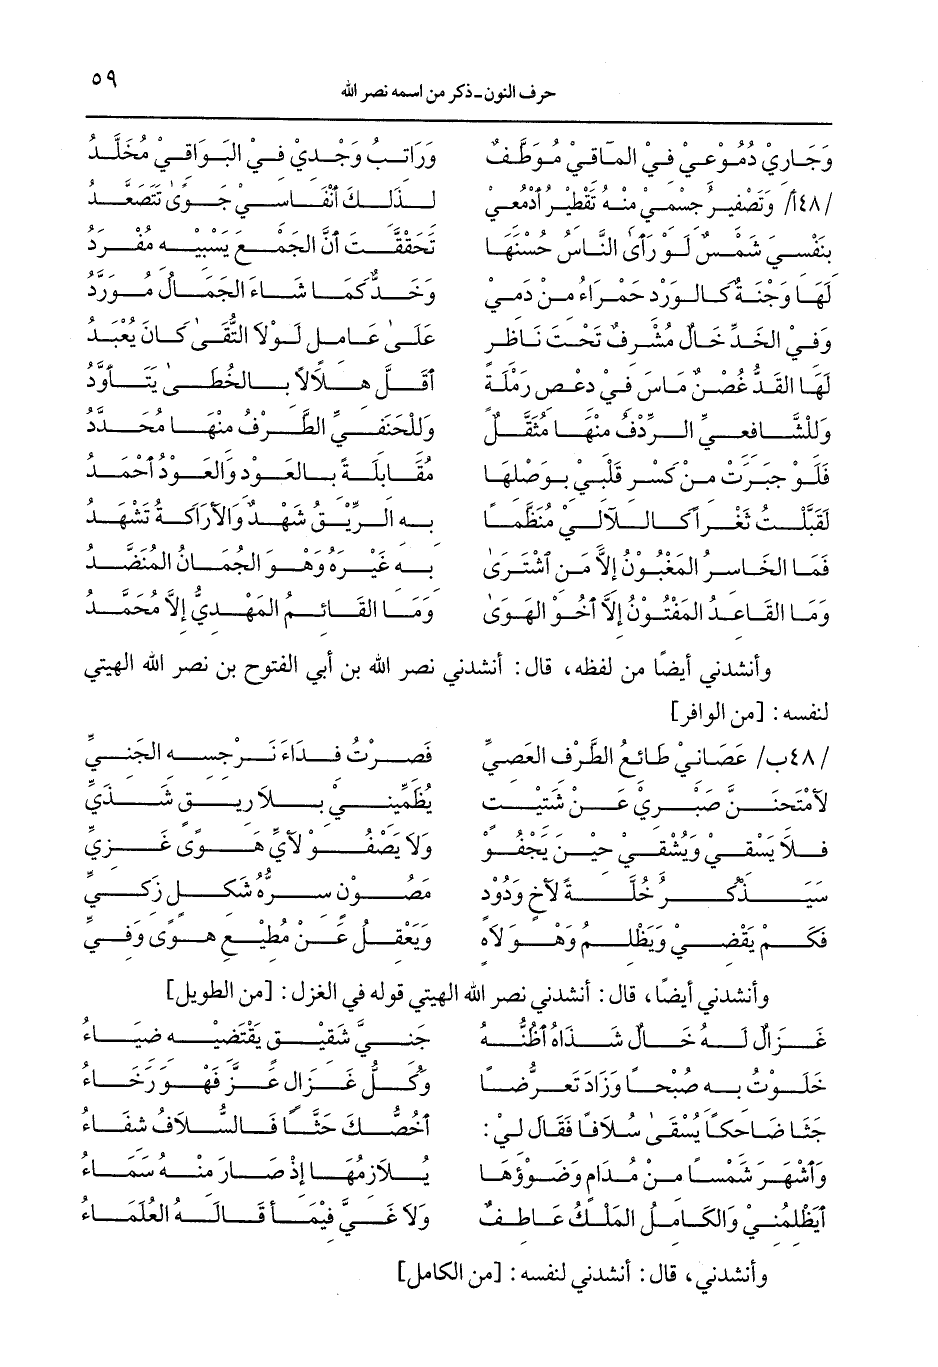 ٥٩
حرف النون ـ ذكر من اسمه نصر الله
وَجَارِيْ دُمُوْعِيْ فِيْ المَآقِيْ مُوَظَّفٌ وَرَاتِبُ وَجْدِيْ فِيْ البَوَاقِيْ مُخَلَّدُ
/٤٨أ/ وَتَصْفِيْرُ جِسْمِي مِنْهُ تَقْطِيْرُ أَدْمُعِي لِذَلِكَ أَنْفَاسِي جَوًى تَتَصَعَّدُ
بِنَفْسِي شَمْسٌ لَوْ رَأَى النَّاسُ حُسْنَهَا تَحَقَّقْتَ أَنَّ الحُسْنَ يُسْبِيْهِ مُفْرَدُ
لَهَا وَجْنَةٌ كَالوَرْدِ حَمْرَاءُ مِنْ دَمِي وَخَدٌّ كَمَا شَاءَ الجَمَالُ مُوَرَّدُ
وَفِيْ الخَدِّ خَالٌ مُشْرِفٌ تَحْتَ نَاظِرٍ عَلَىٰ عَامِلٍ لَوْلَا التُّقَىٰ كَانَ يُعْبَدُ
لَهَا القَدُّ غُصْنٌ مَاسَ فِي دِعْصِ رَمْلَةٍ أَقَلَّ هِلَالاً بِالخُطَىٰ يَتَأَوَّدُ
وَلِلشَّافِعِيِّ الرِّدْفُ مِنْهَا مُثَقَّلٌ وَلِلْحَنَفِيِّ الطَّرْفُ مِنْهَا مُحَدَّدُ
فَلَوْ جَبَرَتْ مِنْ كَسْرِ قَلْبِيْ بِوَصْلِهَا مُقَابَلَةً بِالعَوْدِ وَالعَوْدُ أَحْمَدُ
لَقَبَّلْتُ ثَغْراً كَاللَّآلِيْ مُنَظَّماً بِهِ الرِّيْقُ شُهْدٌ وَالأَرَاكَةُ تَشْهَدُ
فَمَا الخَاسِرُ المَغْبُوْنُ إِلَّا مَنِ اشْتَرَىٰ بِهِ غَيْرَهُ وَهْوَ الجُمَانُ المُنَضَّدُ
وَمَا القَاعِدُ المَفْتُوْنُ إِلَّا أَخُوْ الهَوَىٰ وَمَا القَائِمُ المَهْدِيُّ إِلَّا مُحَمَّدُ
وأنشدني أيضاً من لفظه، قال: أنشدني نصر الله بن أبي الفتوح بن نصر الله الهيتي
لنفسه: [من الوافر]
/٤٨ب/ عَصَانِيْ طَائِعُ الطَّرْفِ العَصِيِّ فَصِرْتُ فِدَاءَ نَرْجِسِهِ الجَنِيِّ
لأَمْتَحِنَنَّ صَبْرِيْ عَنْ شَتِيْتٍ يُظَمِّيْنِيْ بِلَا رِيْقٍ شَذِيِّ
فَلَا يَسْقِي وَيَشْفِي حِيْنَ يَجْفُوْ وَلَا يَصْفُوْ لأَيِّ هَوًى غَزِيِّ
سَيَذْكُرُ خُلَّةً لأَخٍ وَدُوْدٍ مَصُوْنٍ سِرُّهُ شَكْلٍ زَكِيِّ
فَكَمْ يَقْضِيْ وَيَظْلِمُ وَهْوَ لَاهٍ وَيَعْقِلُ عَنْ مُطِيْعِ هَوًى وَفِيِّ
وأنشدني أيضاً، قال: أنشدني نصر الله الهيتي قوله في الغزل: [من الطويل]
غَزَالٌ لَهُ خَالٌ شَذَاهُ أَظُنُّهُ جَنِيَّ شَقِيْقٍ يَقْتَضِيْهِ ضِيَاءُ
خَلَوْتُ بِهِ صُبْحاً وَزَادَ تَعَرُّضاً وَكُلُّ غَزَالٍ عَزَّ فَهْوَ رَخَاءُ
جَثَا ضَاحِكاً يُسْقَىٰ سُلَافاً فَقَالَ لِيْ: أَخُصُّكَ حَثًّا فَالسُّلَافُ شِفَاءُ
وَأَشْهَرَ شَمْساً مِنْ مُدَامٍ وَضَوْؤُهَا يُلَازِمُهَا إِذْ صَارَ مِنْهُ سَمَاءُ
أَيَظْلِمُنِيْ وَالكَامِلُ المَلْكُ عَاطِفٌ وَلَا غَيَّ فِيْمَا قَالَهُ العُلَمَاءُ
وأنشدني، قال: أنشدني لنفسه: [من الكامل]